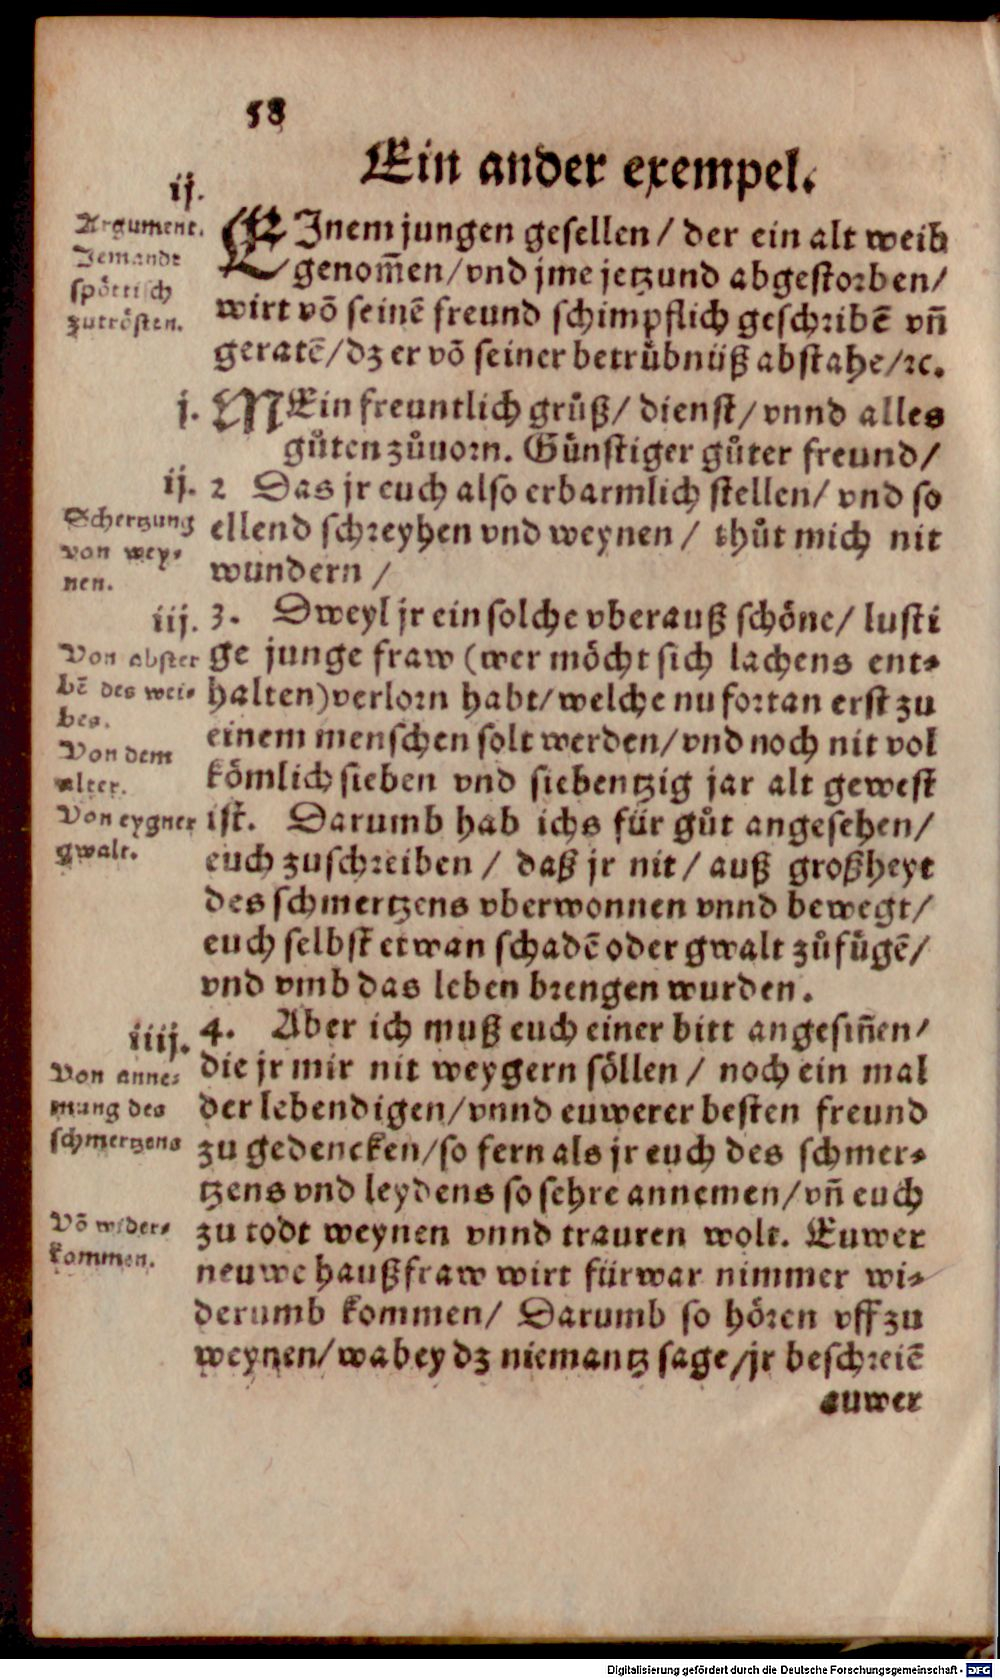 58
Ein ander exempel.
ij.
Argument.
Jemandt
spöttisch
zutrösten.
EInem jungen gesellen / der ein alt weib
genom̃en / vnd jme jetzund abgestorben /
wirt võ seinẽ freund schimpflich geschribẽ vñ
geratẽ / dz er võ seiner betrůbnüß abstahe / ꝛc.
j.
MEin freuntlich grůß / dienst / vnnd alles
gůten zůuorn. Günstiger gůter freund /
ij.
Schertzung
von wey⸗
nen.
2 Das jr euch also erbarmlich stellen / vnd so
ellend schreyhen vnd weynen / thůt mich nit
wundern /
iij.
Von abster
bẽ des wei⸗
bes.
Von dem
alter.
Von eygner
gwalt.
3. Dweyl jr ein solche vberauß schöne / lusti
ge junge fraw (wer möcht sich lachens ent⸗
halten) verlorn habt / welche nu fortan erst zu
einem menschen solt werden / vnd noch nit vol
kömlich sieben vnd siebentzig jar alt gewest
ist. Darumb hab ichs für gůt angesehen /
euch zuschreiben / daß jr nit / auß großheyt
des schmertzens vberwonnen vnnd bewegt /
euch selbst etwan schadẽ oder gwalt zůfügẽ /
vnd vmb das leben brengen wurden.
iiij.
Von anne⸗
mung des
schmertzens
Võ wider⸗
kommen.
4. Aber ich muß euch einer bitt angesiñen /
die jr mir nit weygern söllen / noch ein mal
der lebendigen / vnnd euwerer besten freund
zu gedencken / so fern als jr euch des schmer⸗
tzens vnd leydens so sehre annemen / vñ euch
zu todt weynen vnnd trauren wolt. Euwer
neuwe haußfraw wirt fürwar nimmer wi⸗
derumb kommen / Darumb so hören vff zu
weynen / wabey dz niemantz sage / jr beschreiẽ
auwer
Digitalisierung gefördert durch die Deutsche Forschungsgemeinschaft - DFG